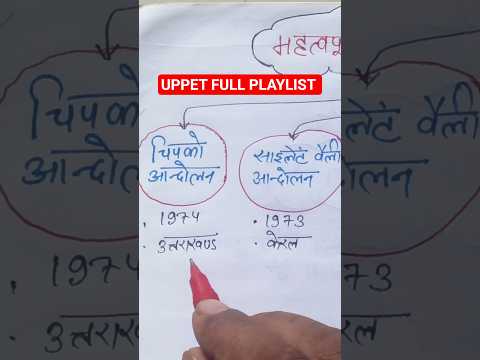 महत्वपू
UPPET FULL PLAYLIST
चिपको
आन्दोलन
साइलेंट वैली
आन्दोलन
. 1974
. उत्तराखण्ड
. 1973
. केरल